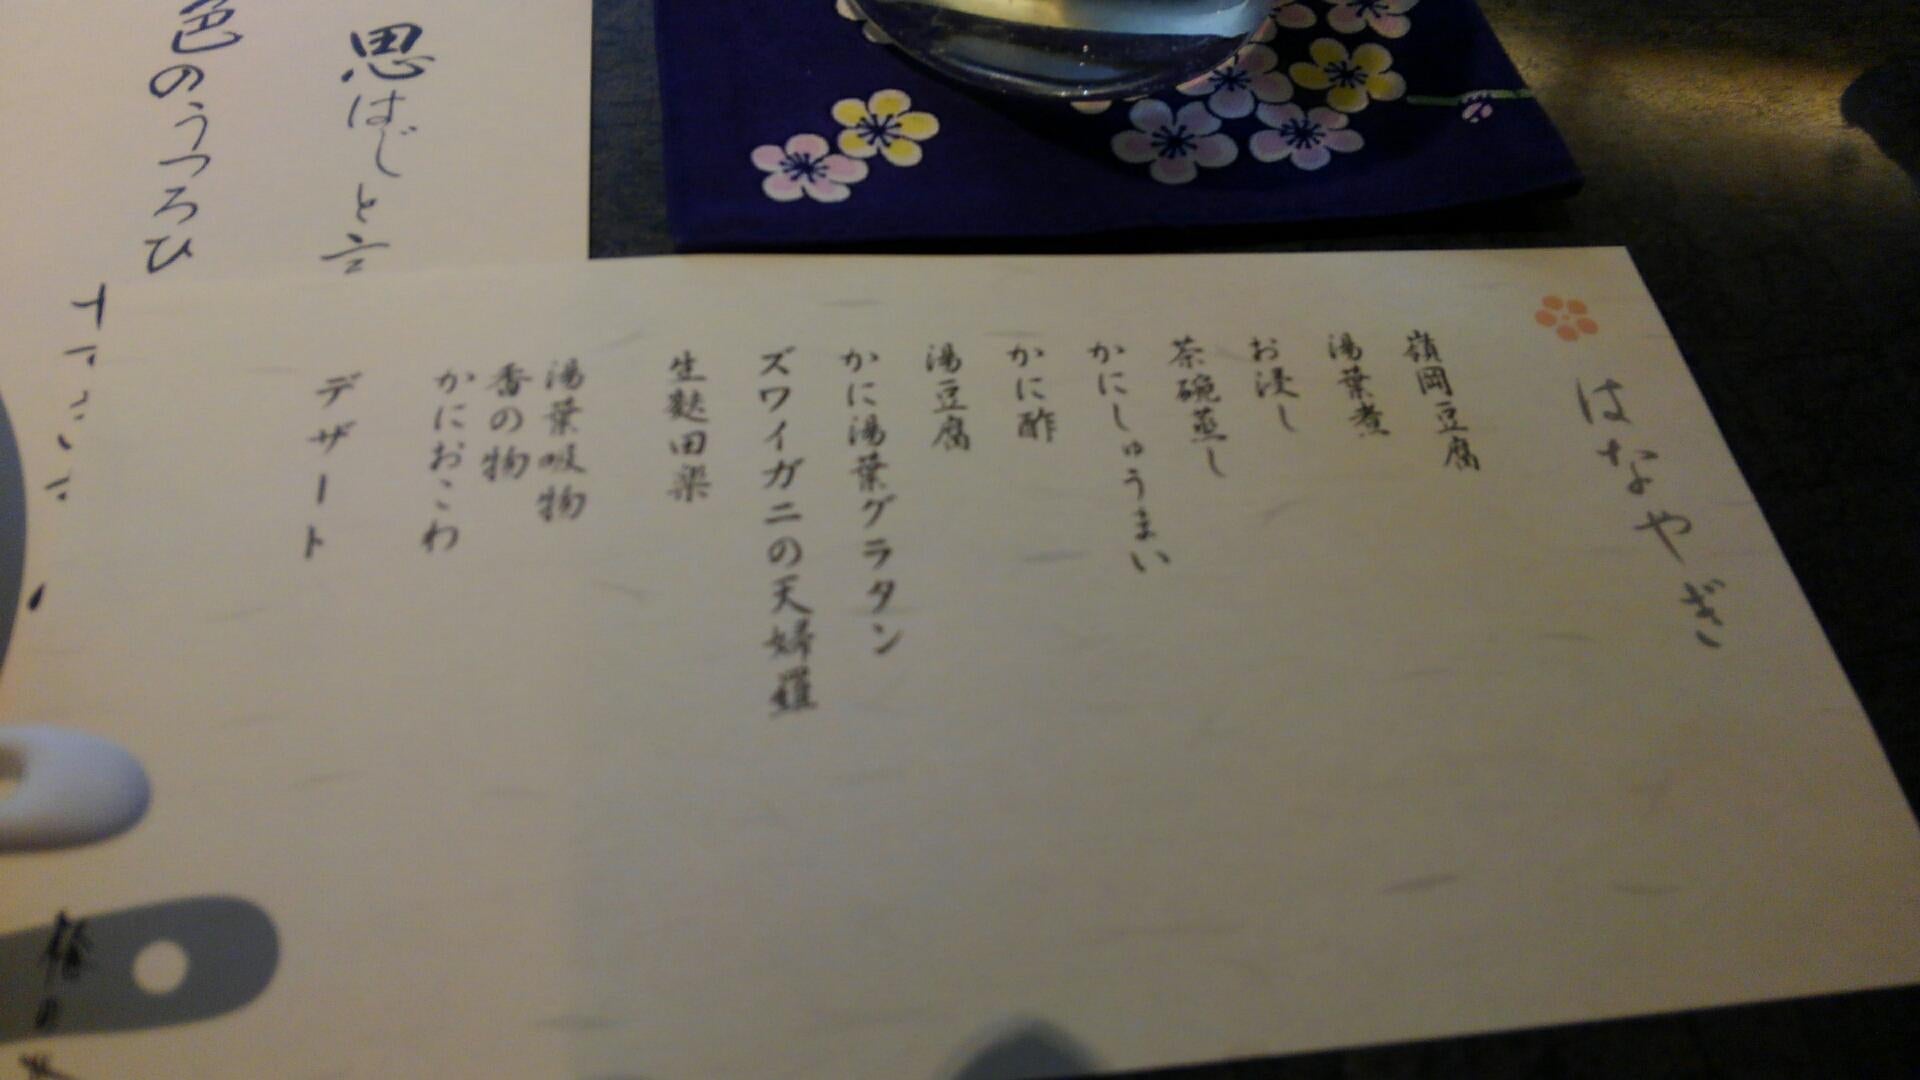 はなやぎ
嶺岡豆腐
湯葉煮
お浸し
茶碗蒸し
かにしゅうまい
かに酢
湯豆腐
かに湯葉グラタン
ズワイガニの天婦羅
生麩田楽
湯葉吸物
香の物
かにおこわ
デザート
思はじと言
色のうつろひ